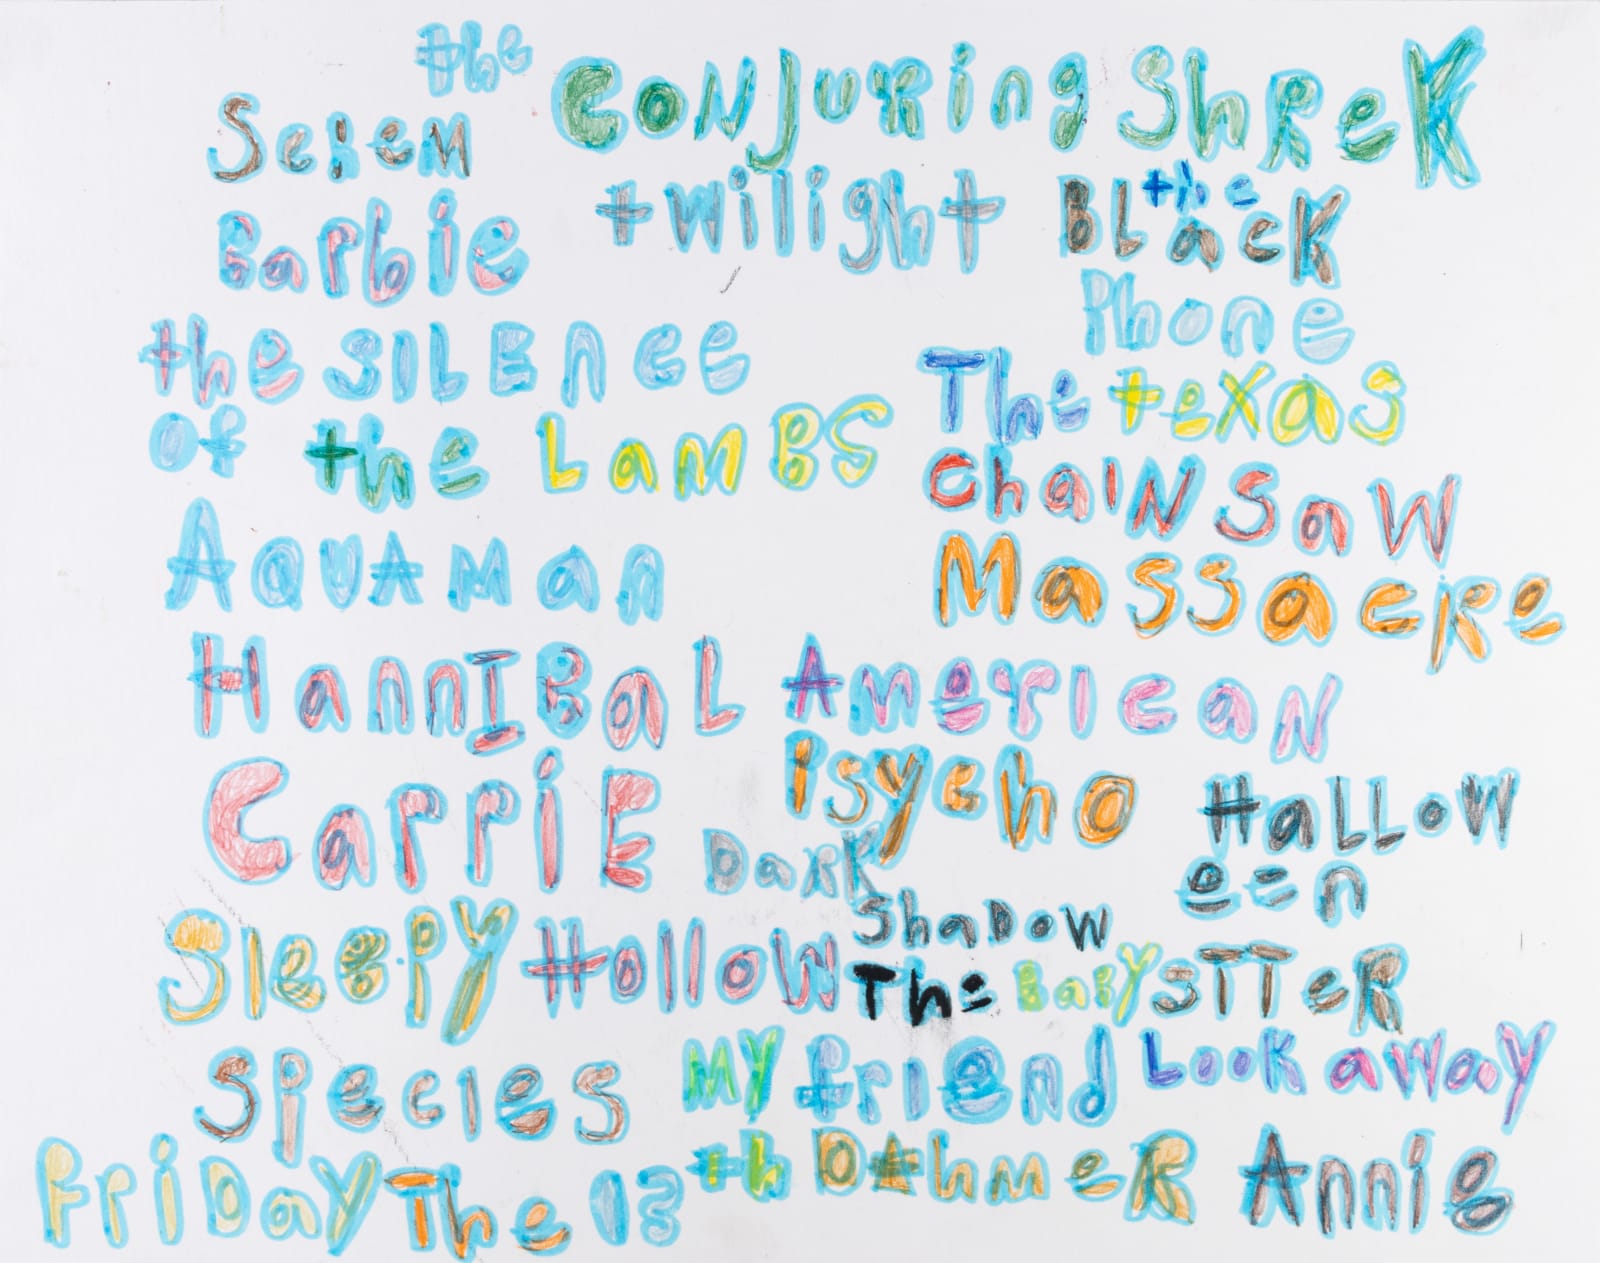 the
ScreM
CONJuring
ShReK
Barbie
twilight
the
BLacK
Phone
the SILEnce
Of the LaMBS
The texas
chaiNSaW
Massacre
AquAMan
HannIBaL
AmerIcaN
Psycho
CarriE
HaLLoW
een
DaRK
ShaDoW
Sleepy Hollow
The BaBYSITTeR
Species
MY friend
DAhmeR
Look away
FRiDaY The 13th
Annie